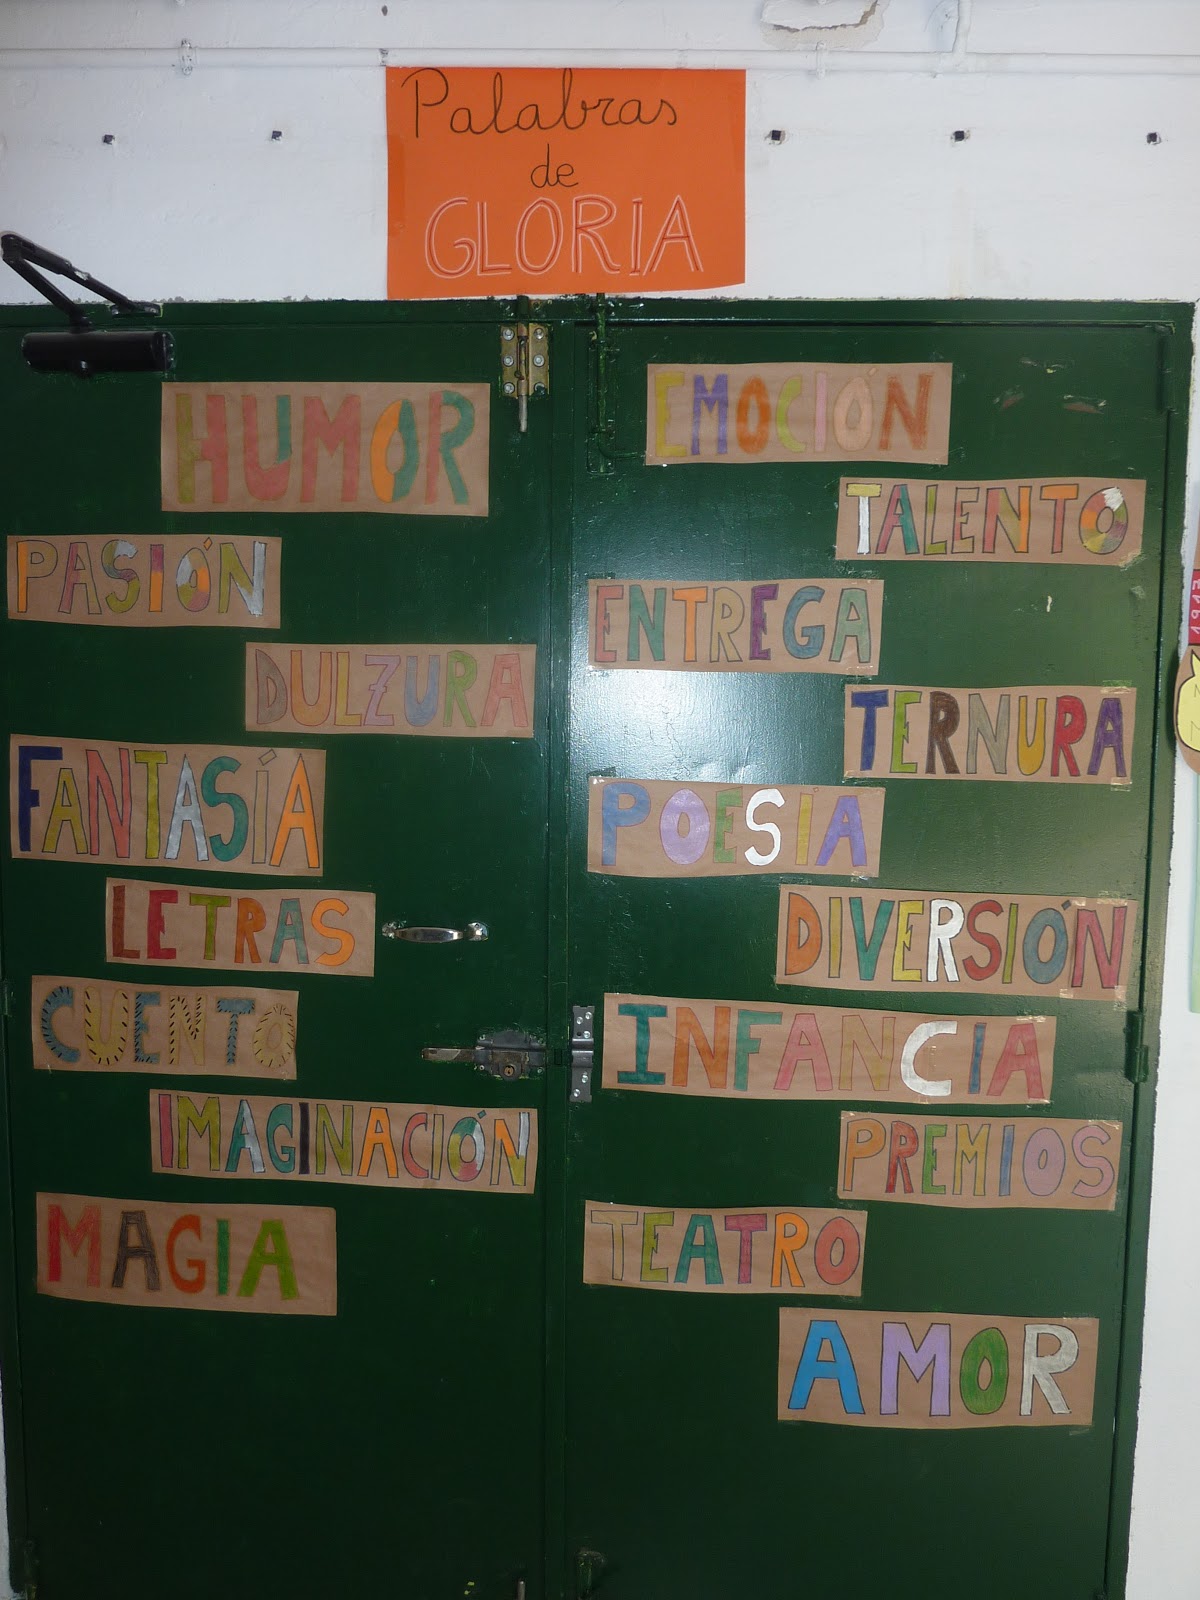 Palabras
de
GLORIA
HUMOR
PASIÓN
DULZURA
FANTASÍA
LETRAS
CUENTO
IMAGINACIÓN
MAGIA
EMOCIÓN
TALENTO
ENTREGA
TERNURA
POESÍA
DIVERSIÓN
INFANCIA
PREMIOS
TEATRO
AMOR